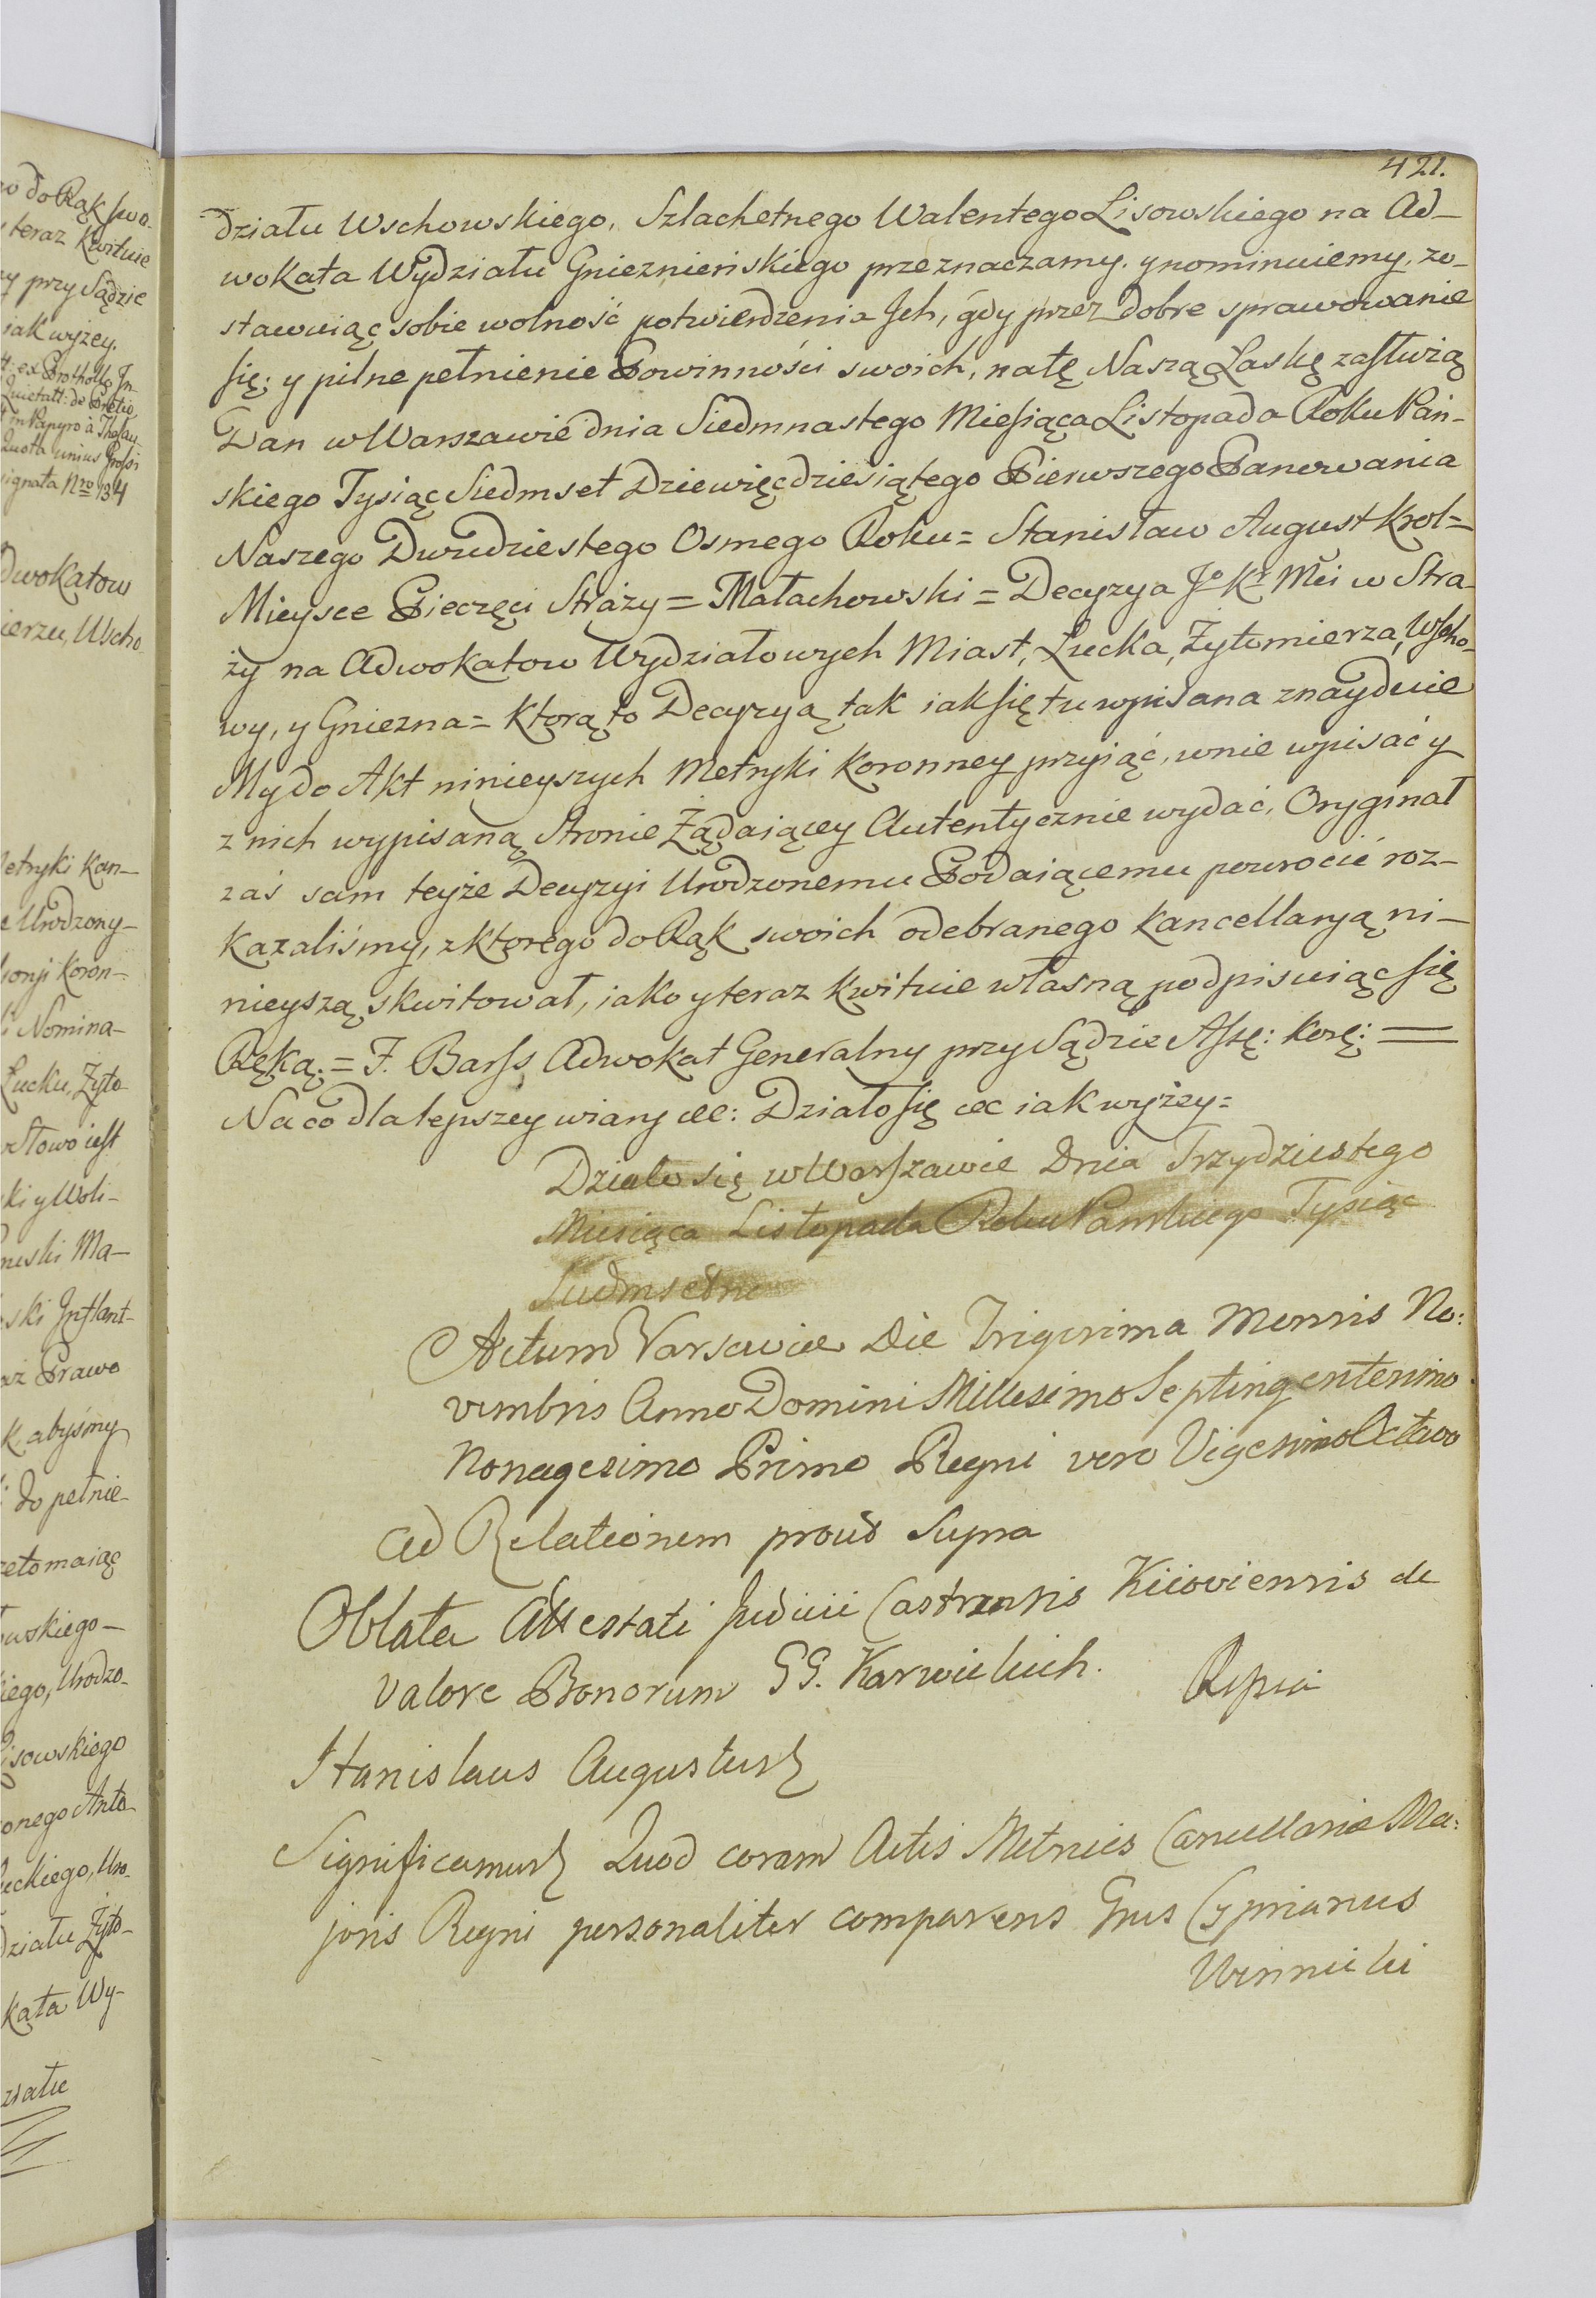 421.
działu Wschowskiego, Szlachetnego Walentego Lisowskiego na Ad-
wokata Wydziału Gnieznieńskiego przeznaczamy. y nominuiemy, zo-
stawuiąc sobie wolność potwierdzenia Ich, gdy przez dobre sprawowanie
się; y pilne pełnienie Powinności swoich, na tę Naszą Łaskę zasłużą
Dan w Warszawie dnia Siedmnastego Miesiąca Listopada Roku Pań-
skiego Tysiąc Siedmset Dziewięćdziesiątego Pierwszego Panowania
Naszego Dwudziestego Osmego Roku = Stanisław August Krol =
Mieysce Pieczęci Straży = Małachowski = Decyzya Jo Kr Mci w Stra-
ży na Adwokatow Wydziałowych Miast, Łucka, Żytomierza, Wscho-
wy, y Gniezna = Ktorą to Decyzyą tak iak się tu wpisana znayduie
My do Akt ninieyszych Metryki Koronney przyiąć, w nie wpisać y
z nich wypisaną Stronie Żądaiącey Autentycznie wydać, Oryginał
zaś sam teyże Decyzyi Urodzonemu Podaiącemu powrocić roz-
kazaliśmy, z ktorego do Rąk swoich odebranego Kancellaryą ni-
nieyszą skwitował, iako y teraz kwituie własną podpisuiąc się
Ręką. = F. Barss Adwokat Generalny przy Sądzie Assę: Korę: =
Na co dla lepszey wiary ec: Działo się ec iak wyżey =
Działo się w Warszawie Dnia Trzydziestego
Miesiąca Listopada Roku Pańskiego Tysiąc
Siedmsetne
Actum Varsaviæ Die Trigesima Mensis No:
vembris Anno Domini Millesimo Septingentesimo
Nonagesimo Primo Regni vero Vigesimo Octavo
Ad Relationem prout Supra
Oblata Attestati Judicii Castrensis Kiioviensis de
valore Bonorum GG. Karwickich.
Stanislaus Augustus
Significamus Quod coram Actis Metrices Cancellariæ Ma:
joris Regni personaliter comparens Gnus Cyprianus
Winnicki
o do Rąk swo-
teraz kwituie
przy Sądzie
iak wyżey.
ignata Nro 134
dwokatow
ierzu, Wscho
etryki Kan-
Urodzony-
Koron-
Nomina-
Łucku, Żyto
Słowo iest
ki y Woli-
Ma-
ski Instant-
az Prawo
k abyśmy
do pełnie-
zeto maiąc
skiego-
iego, Urodzo-
isowskiego
onego Anto-
uckiego, Uro-
działu Żyto-
kata Wy-
ziału